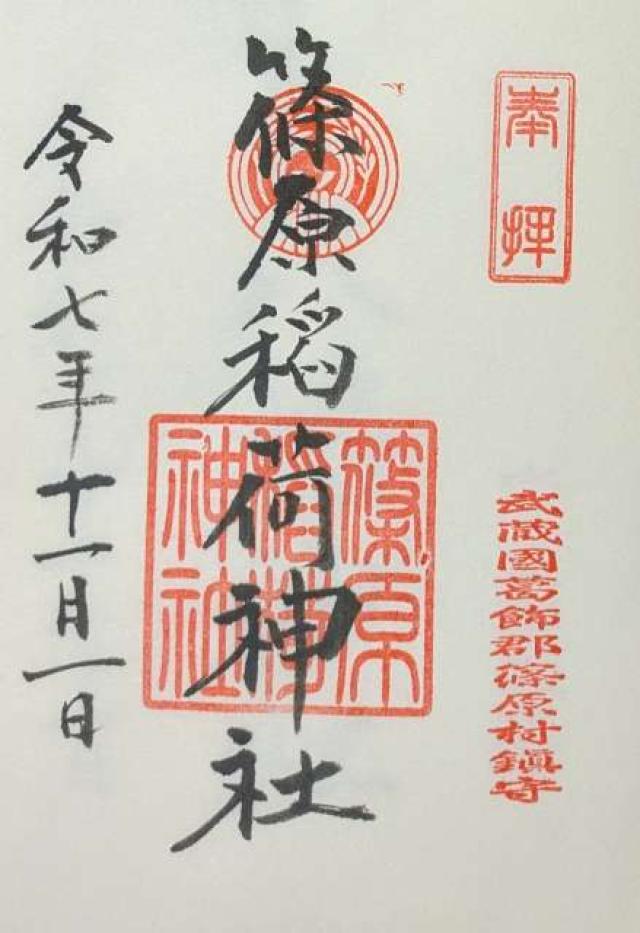 奉拝
武蔵國葛飾郡篠原村鎮守
篠原稲荷神社
篠原
稲荷
神社
令和七年十一月一日